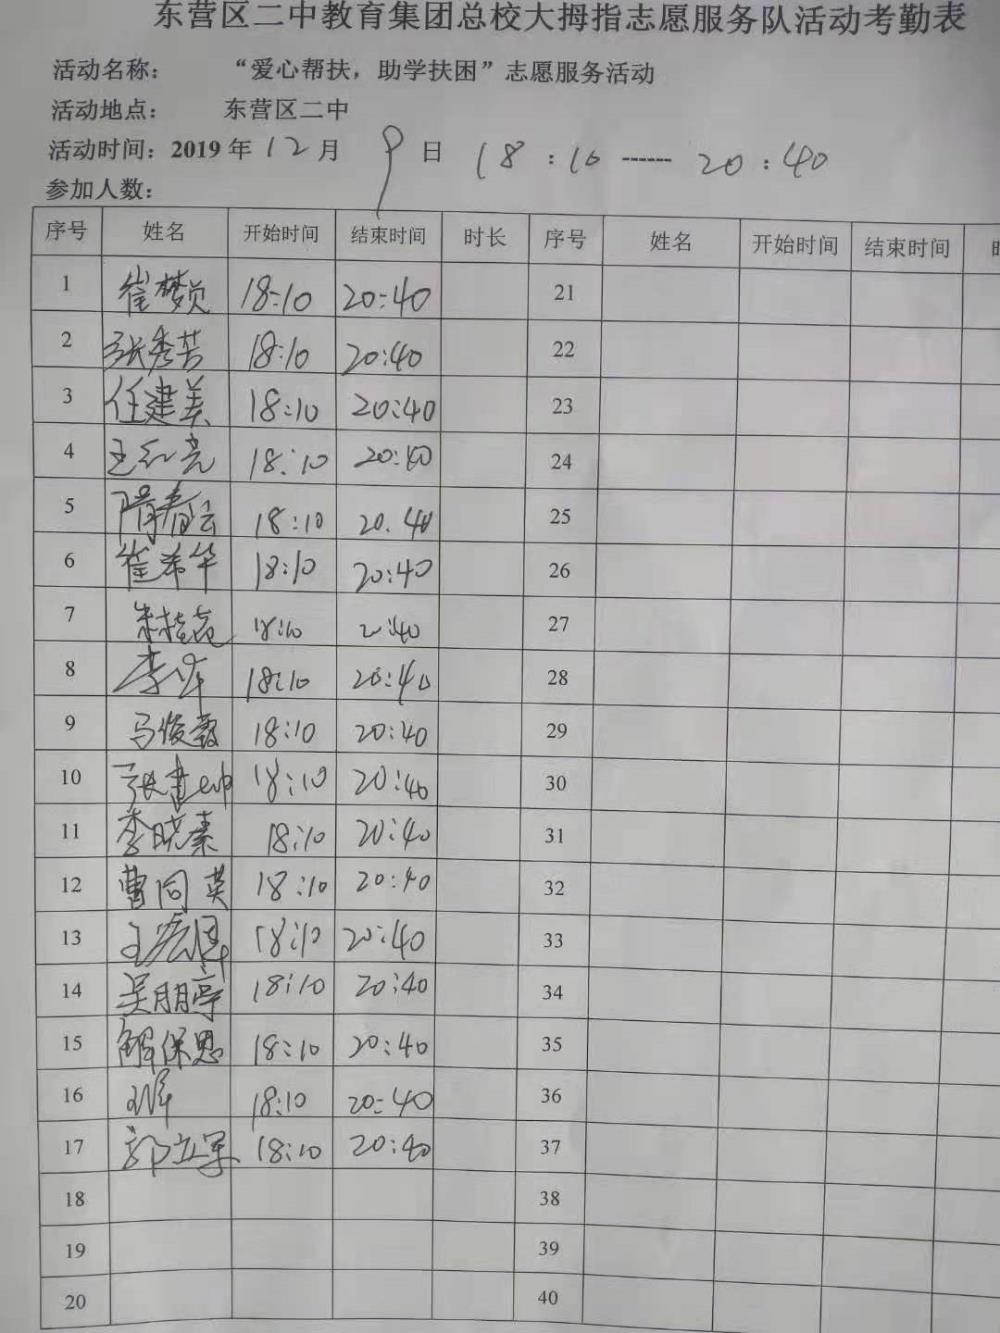 东营区二中教育集团总校大拇指志愿服务队活动考勤表
活动名称: “爱心帮扶,助学扶困”志愿服务活动
活动地点: 东营区二中
活动时间: 2019年12月 9日 18:10 ------ 20:40
参加人数:
序号 姓名 开始时间 结束时间 时长 序号 姓名 开始时间 结束时间
1 崔梦贞 18:10 20:40 21
2 张秀芳 18:10 20:40 22
3 任建美 18:10 20:40 23
4 王红亮 18:10 20:40 24
5 隋春云 18:10 20.40 25
6 崔希华 18:10 20:40 26
7 朱桂苑 18:10 20:40 27
8 李军 18:10 20:40 28
9 马俊毅 18:10 20:40 29
10 张建 18:10 20:40 30
11 李晓秦 18:10 20:40 31
12 曹同英 18:10 20:40 32
13 王 18:10 20:40 33
14 吴朋亭 18:10 20:40 34
15 解保恩 18:10 20:40 35
16 18:10 20:40 36
17 郭立军 18:10 20:40 37
18 38
19 39
20 40